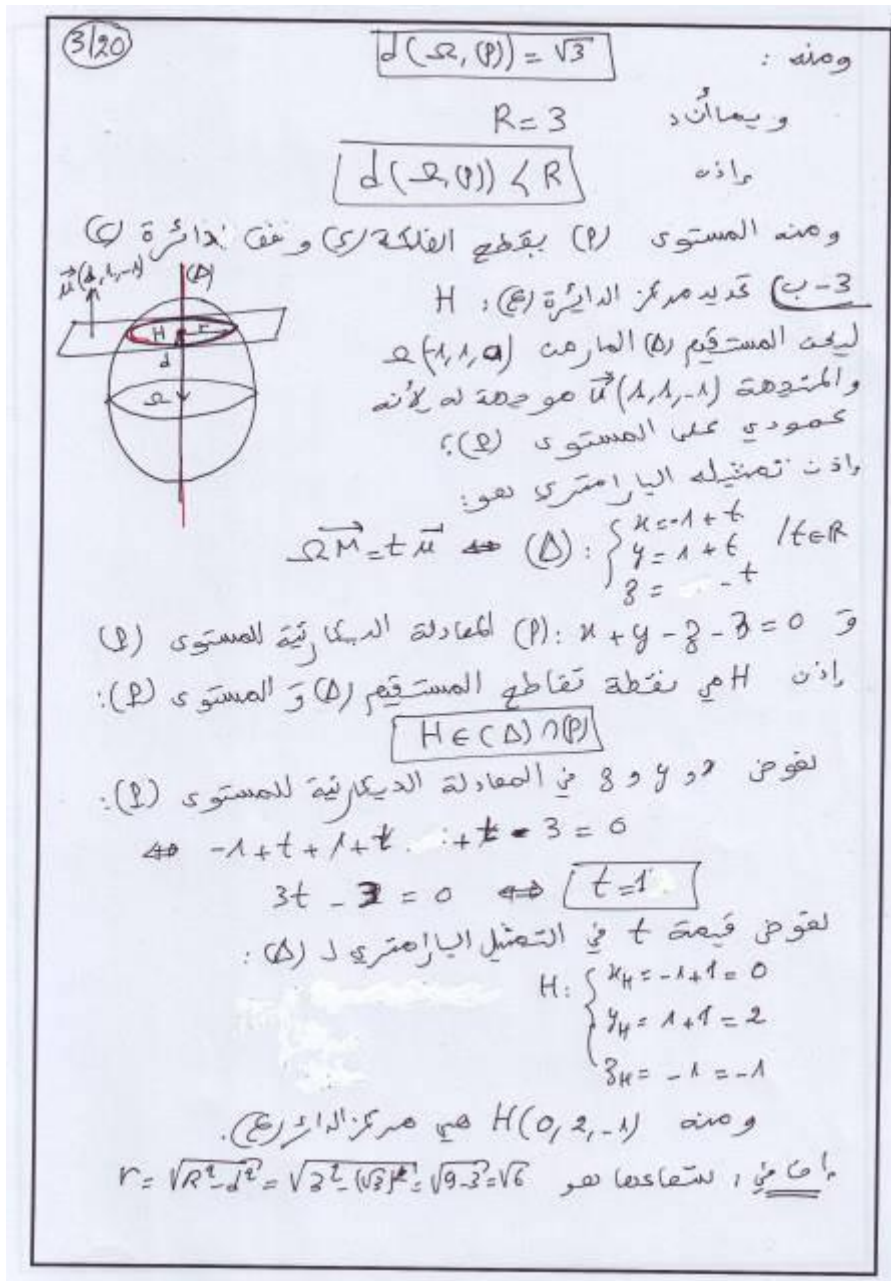 3/20
ومنه : d(Ω,(P)) = √3
وبما أن: R = 3
إذن d(Ω,(P)) < R
ومنه المستوى (P) يقطع الفلكة (S) وفق دائرة (C)
3-ب) تحديد مركز الدائرة (C): H
ū(1,1,-1)
(Δ)
H r
d
Ω
ليكن المستقيم (Δ) المار من Ω(-1,1,0)
والمتجهة ū(1,1,-1) موجهة له لأنه
عمودي على المستوى (P)؛
إذن تمثيله البارامتري هو:
ΩM = t ū ⇔ (Δ): { x = -1 + t
y = 1 + t /t∈ℝ
z = - t
و (P): x + y - z - 3 = 0 المعادلة الديكارتية للمستوى (P)
إذن H هي نقطة تقاطع المستقيم (Δ) و المستوى (P):
H ∈ (Δ) ∩ (P)
نعوض x و y و z في المعادلة الديكارتية للمستوى (P):
⇔ -1 + t + 1 + t + t - 3 = 0
3t - 3 = 0 ⇔ t = 1
نعوض قيمة t في التمثيل البارامتري ل (Δ):
H: { xH = -1 + 1 = 0
yH = 1 + 1 = 2
zH = -1 = -1
ومنه H(0,2,-1) هي مركز الدائرة (C).
إضافي، شعاعها هو r = √R²-d² = √3²-(√3)² = √9-3 = √6